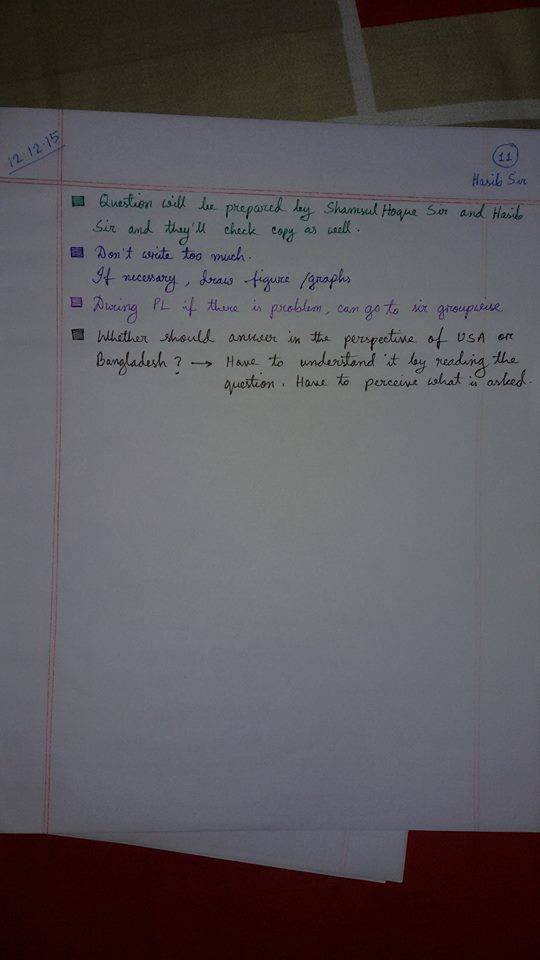 12.12.15
11
Hasib Sir
Question will be prepared by Shamsul Hoque Sir and Hasib
Sir and they'll check copy as well.
Don't write too much.
If necessary, draw figure/graphs
During PL if there is problem, can go to sir groupwise
Whether should answer in the perspective of USA or
Bangladesh? → Have to understand it by reading the
question. Have to perceive what is asked.